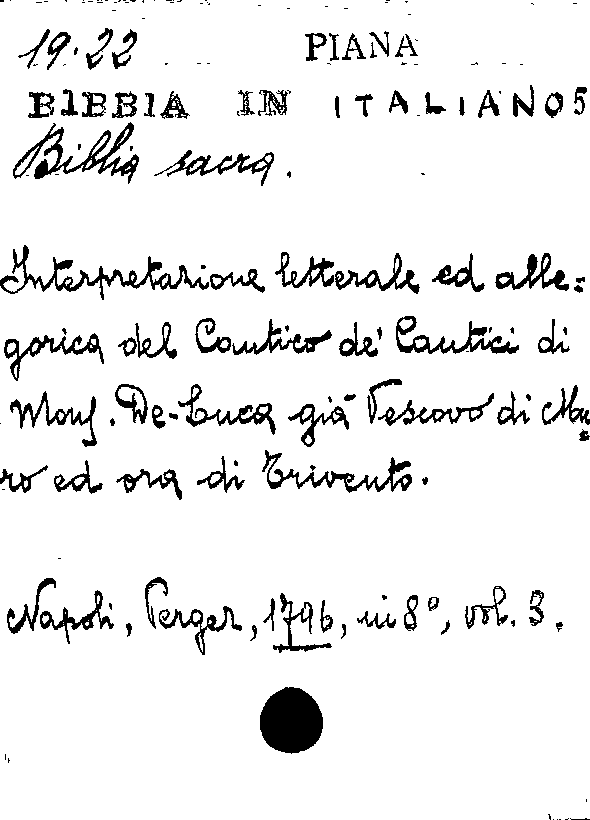 19.22 PIANA
BIBBIA IN ITALIANO 5
Biblia sacra.
Interpretazione letterale ed alle=
gorica del Cantico de' Cantici di
Mons. De-Luca già Vescovo di Mu
ro ed ora di Trivento.
Napoli, Verger, 1796, in 8°, vol. 3.